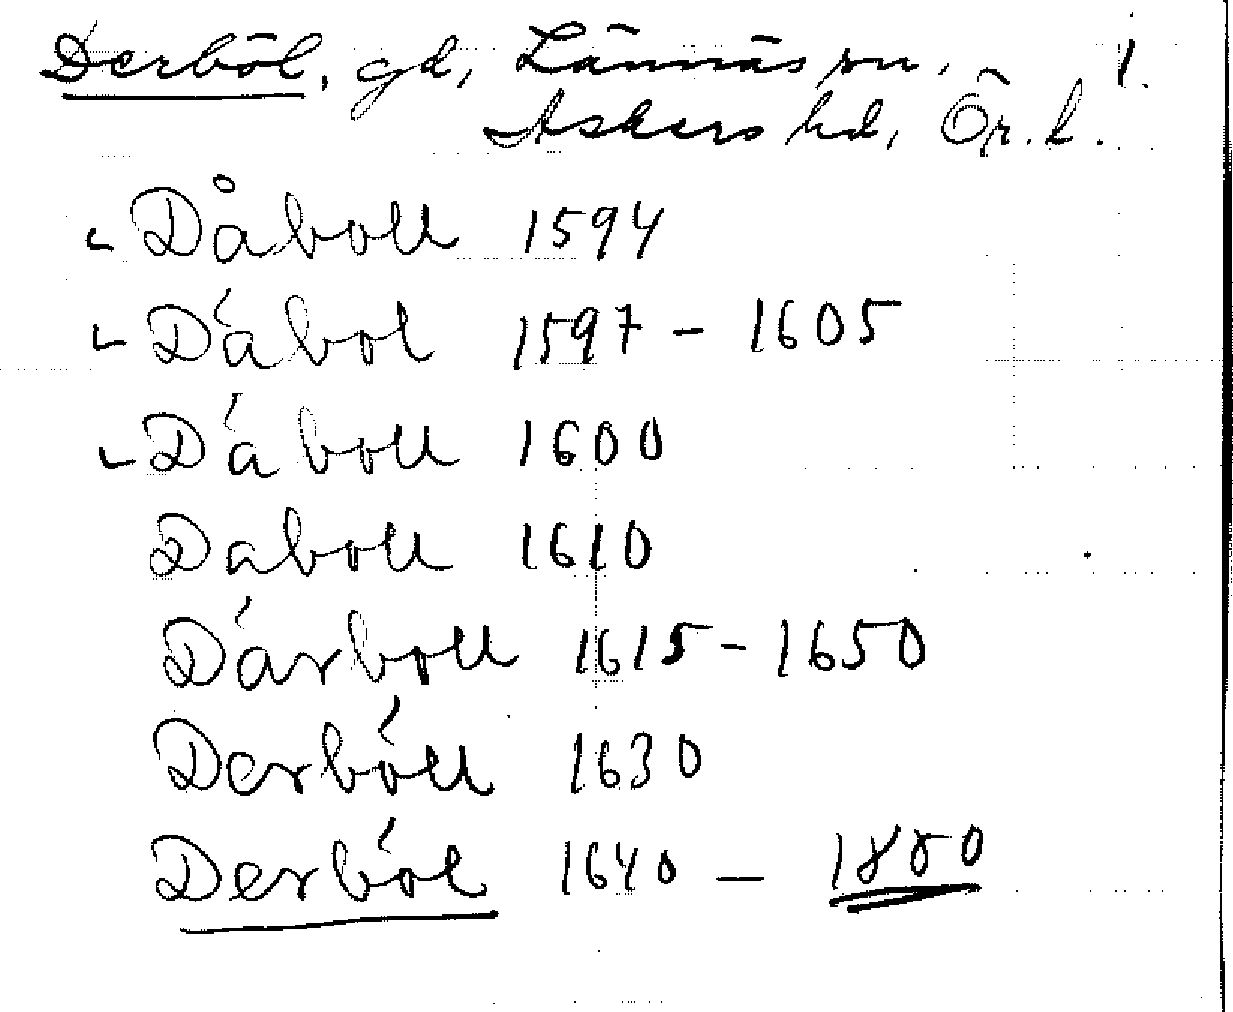 Derböl, gd, Lännäs sn, 1.
Askers hd, Ör. l.
Dåboll 1594
Dábol 1597 - 1605
Dáboll 1600
Daboll 1610
Dárboll 1615 - 1650
Derbóll 1630
Derból 1640 - 1880